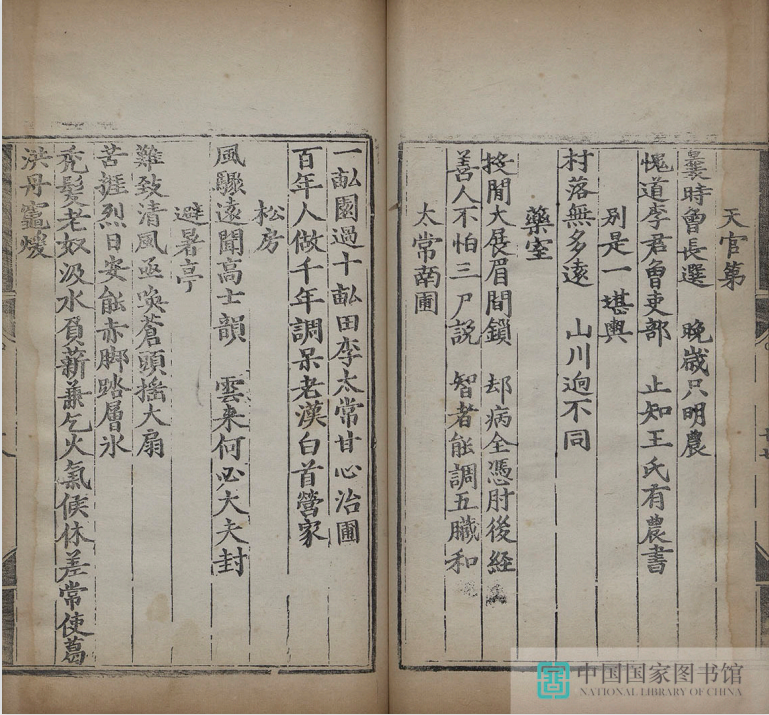 天官第
曩時會長選　晚歲只明農
愧道李君曾吏部　止知王氏有農書
別是一堪輿
村落無多遠　山川迥不同
藥室
投閒大展眉間鎖　却病全憑肘後経
善人不怕三尸説　智者能調五臟和
太常蔬圃
一畝園過十畝田李太常甘心治圃
百年人做千年調呆老漢白首營家
松房
風驟遠聞高士韻　雲来何必大夫封
避暑亭
難致清風亟喚蒼頭揺大扇
苦捱烈日安能赤脚踏層氷
禿髮老奴汲水負薪兼乞火氣候休差常使葛
洪丹竈煖
中国国家图书馆
NATIONAL LIBRARY OF CHINA